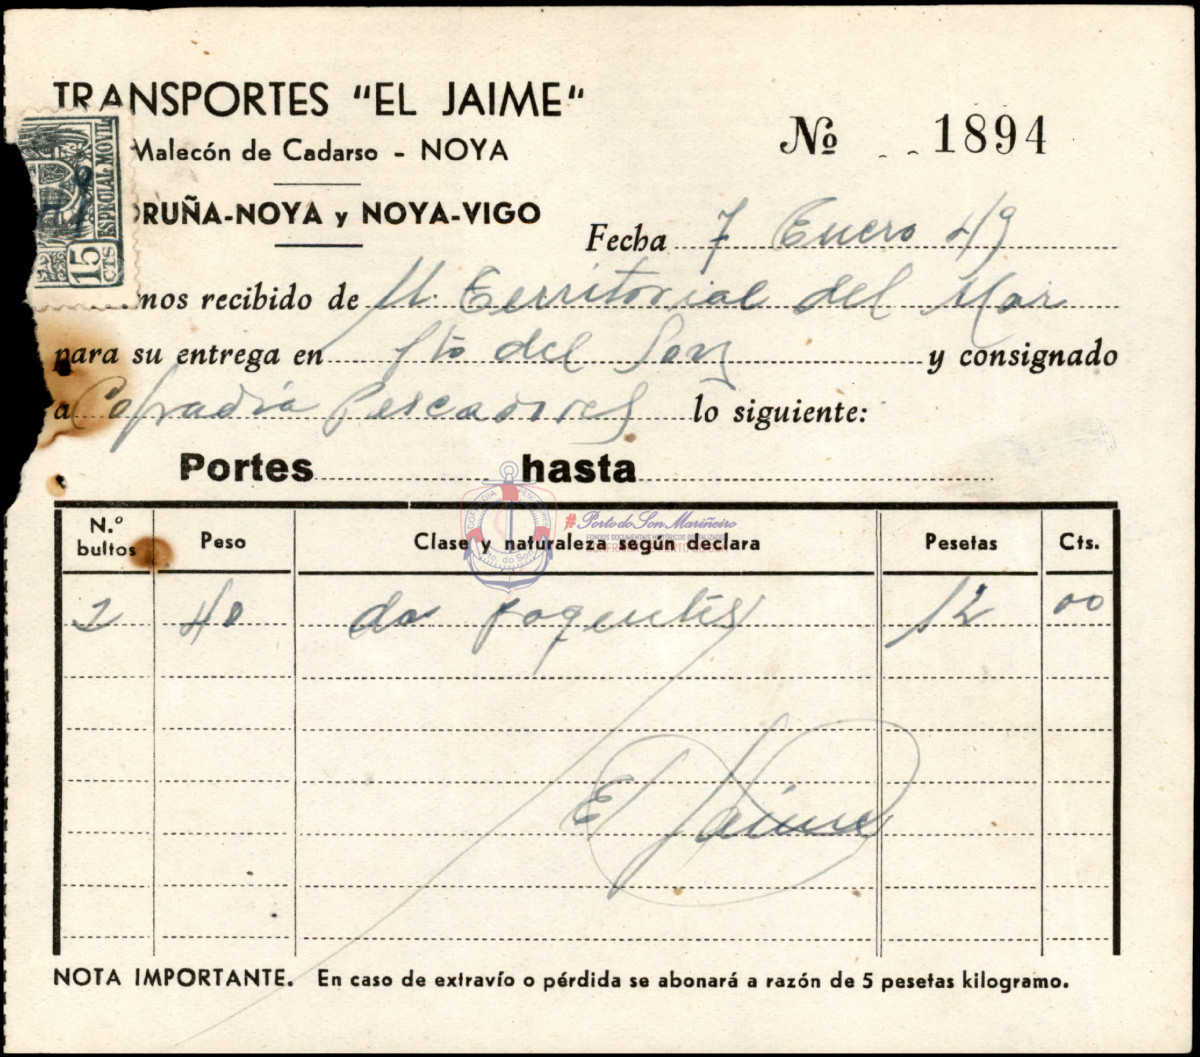 TRANSPORTES "EL JAIME"
Malecón de Cadarso - NOYA
Nº 1894
ORUÑA-NOYA y NOYA-VIGO
ESPECIAL MOVIL
15 CTS
Fecha 7 Enero 49
mos recibido de M. Territorial del Mar
para su entrega en Pto del Son y consignado
a Cofradia Pescadores lo siguiente:
Portes hasta
#PortodoSon Mariñeiro
N.º bultos Peso Clase y naturaleza según declara Pesetas Cts.
2 40 dos paquetes 12 00
El Jaime
NOTA IMPORTANTE. En caso de extravío o pérdida se abonará a razón de 5 pesetas kilogramo.